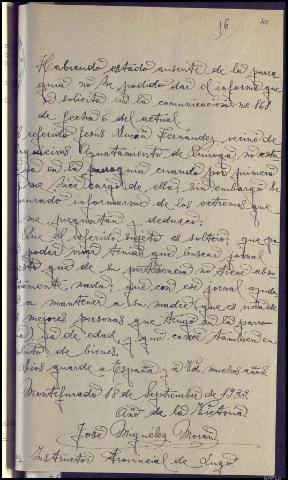 16
Habiendo estado ausente de la parro
quia no he podido dar el informe que
se solicita en la comunicación nº 161
de fecha 6 del actual.
El referido Jesus Durán Fernández, vecino de
Ayuntamiento de Quiroga no esta
en la parroquia cuando por primera
hice cargo de ella, sin embargo he
procurado informarme de los extremos que
me preguntan y deduzco:
Que el referido sujeto es soltero; que pa
poder vivir tenía que buscar jornal
que de su pertenencia no tiene abso
lutamente nada; que con ese jornal ayuda
a mantener a su madre (que es una de
las mejores personas que tengo en la parro
quia) ya de edad, y que carece tambien en
absoluto de bienes.
Dios guarde a España y a Vd. muchos años
Montefurado 18 de Septiembre de 1939.
Año de la Victoria
José Miguélez Morán
Instructor Provincial de Lugo.